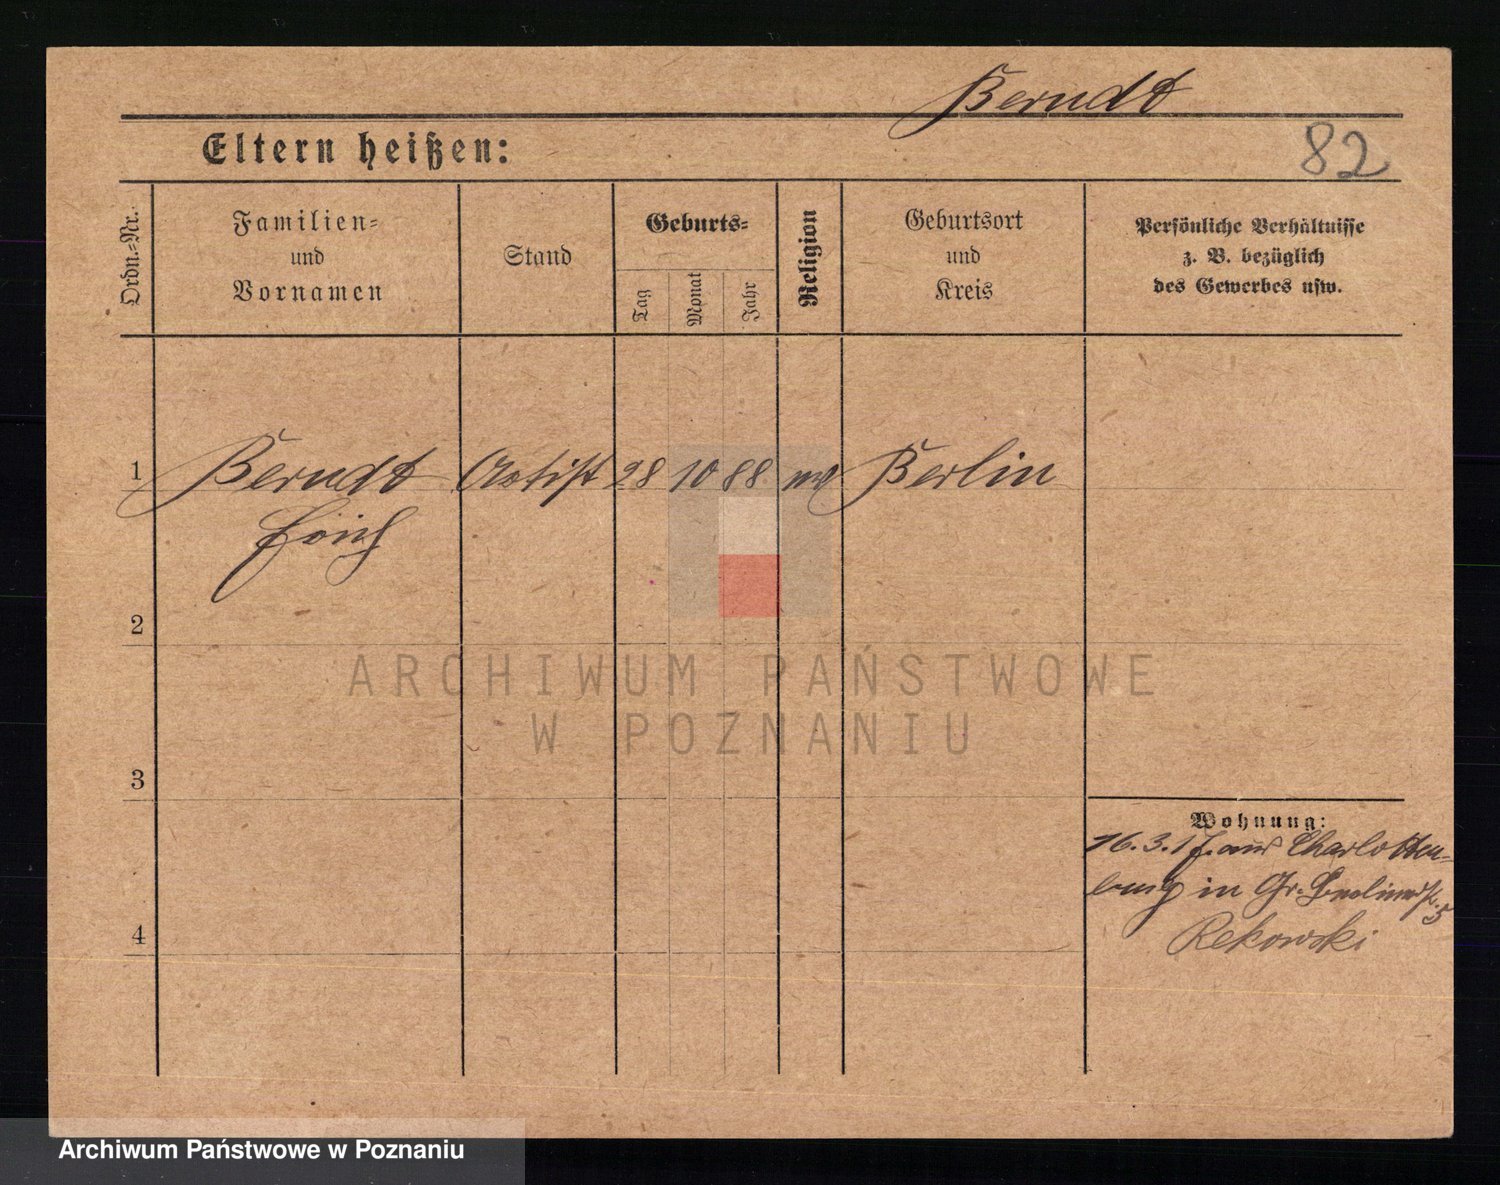 Berndt
82
Eltern heißen:
Ordn.-Nr.
Familien-
und
Vornamen
Stand
Geburts-
Tag
Monat
Jahr
Religion
Geburtsort
und
Kreis
Persönliche Verhältnisse
z. B. bezüglich
des Gewerbes usw.
1 Berndt Artist 28 10 88 Berlin
Erich
2
ARCHIWUM PAŃSTWOWE
W POZNANIU
3
Wohnung:
16.3.17. aus Charlotten-
burg in Gr. 5
4
Rekowski
Archiwum Państwowe w Poznaniu